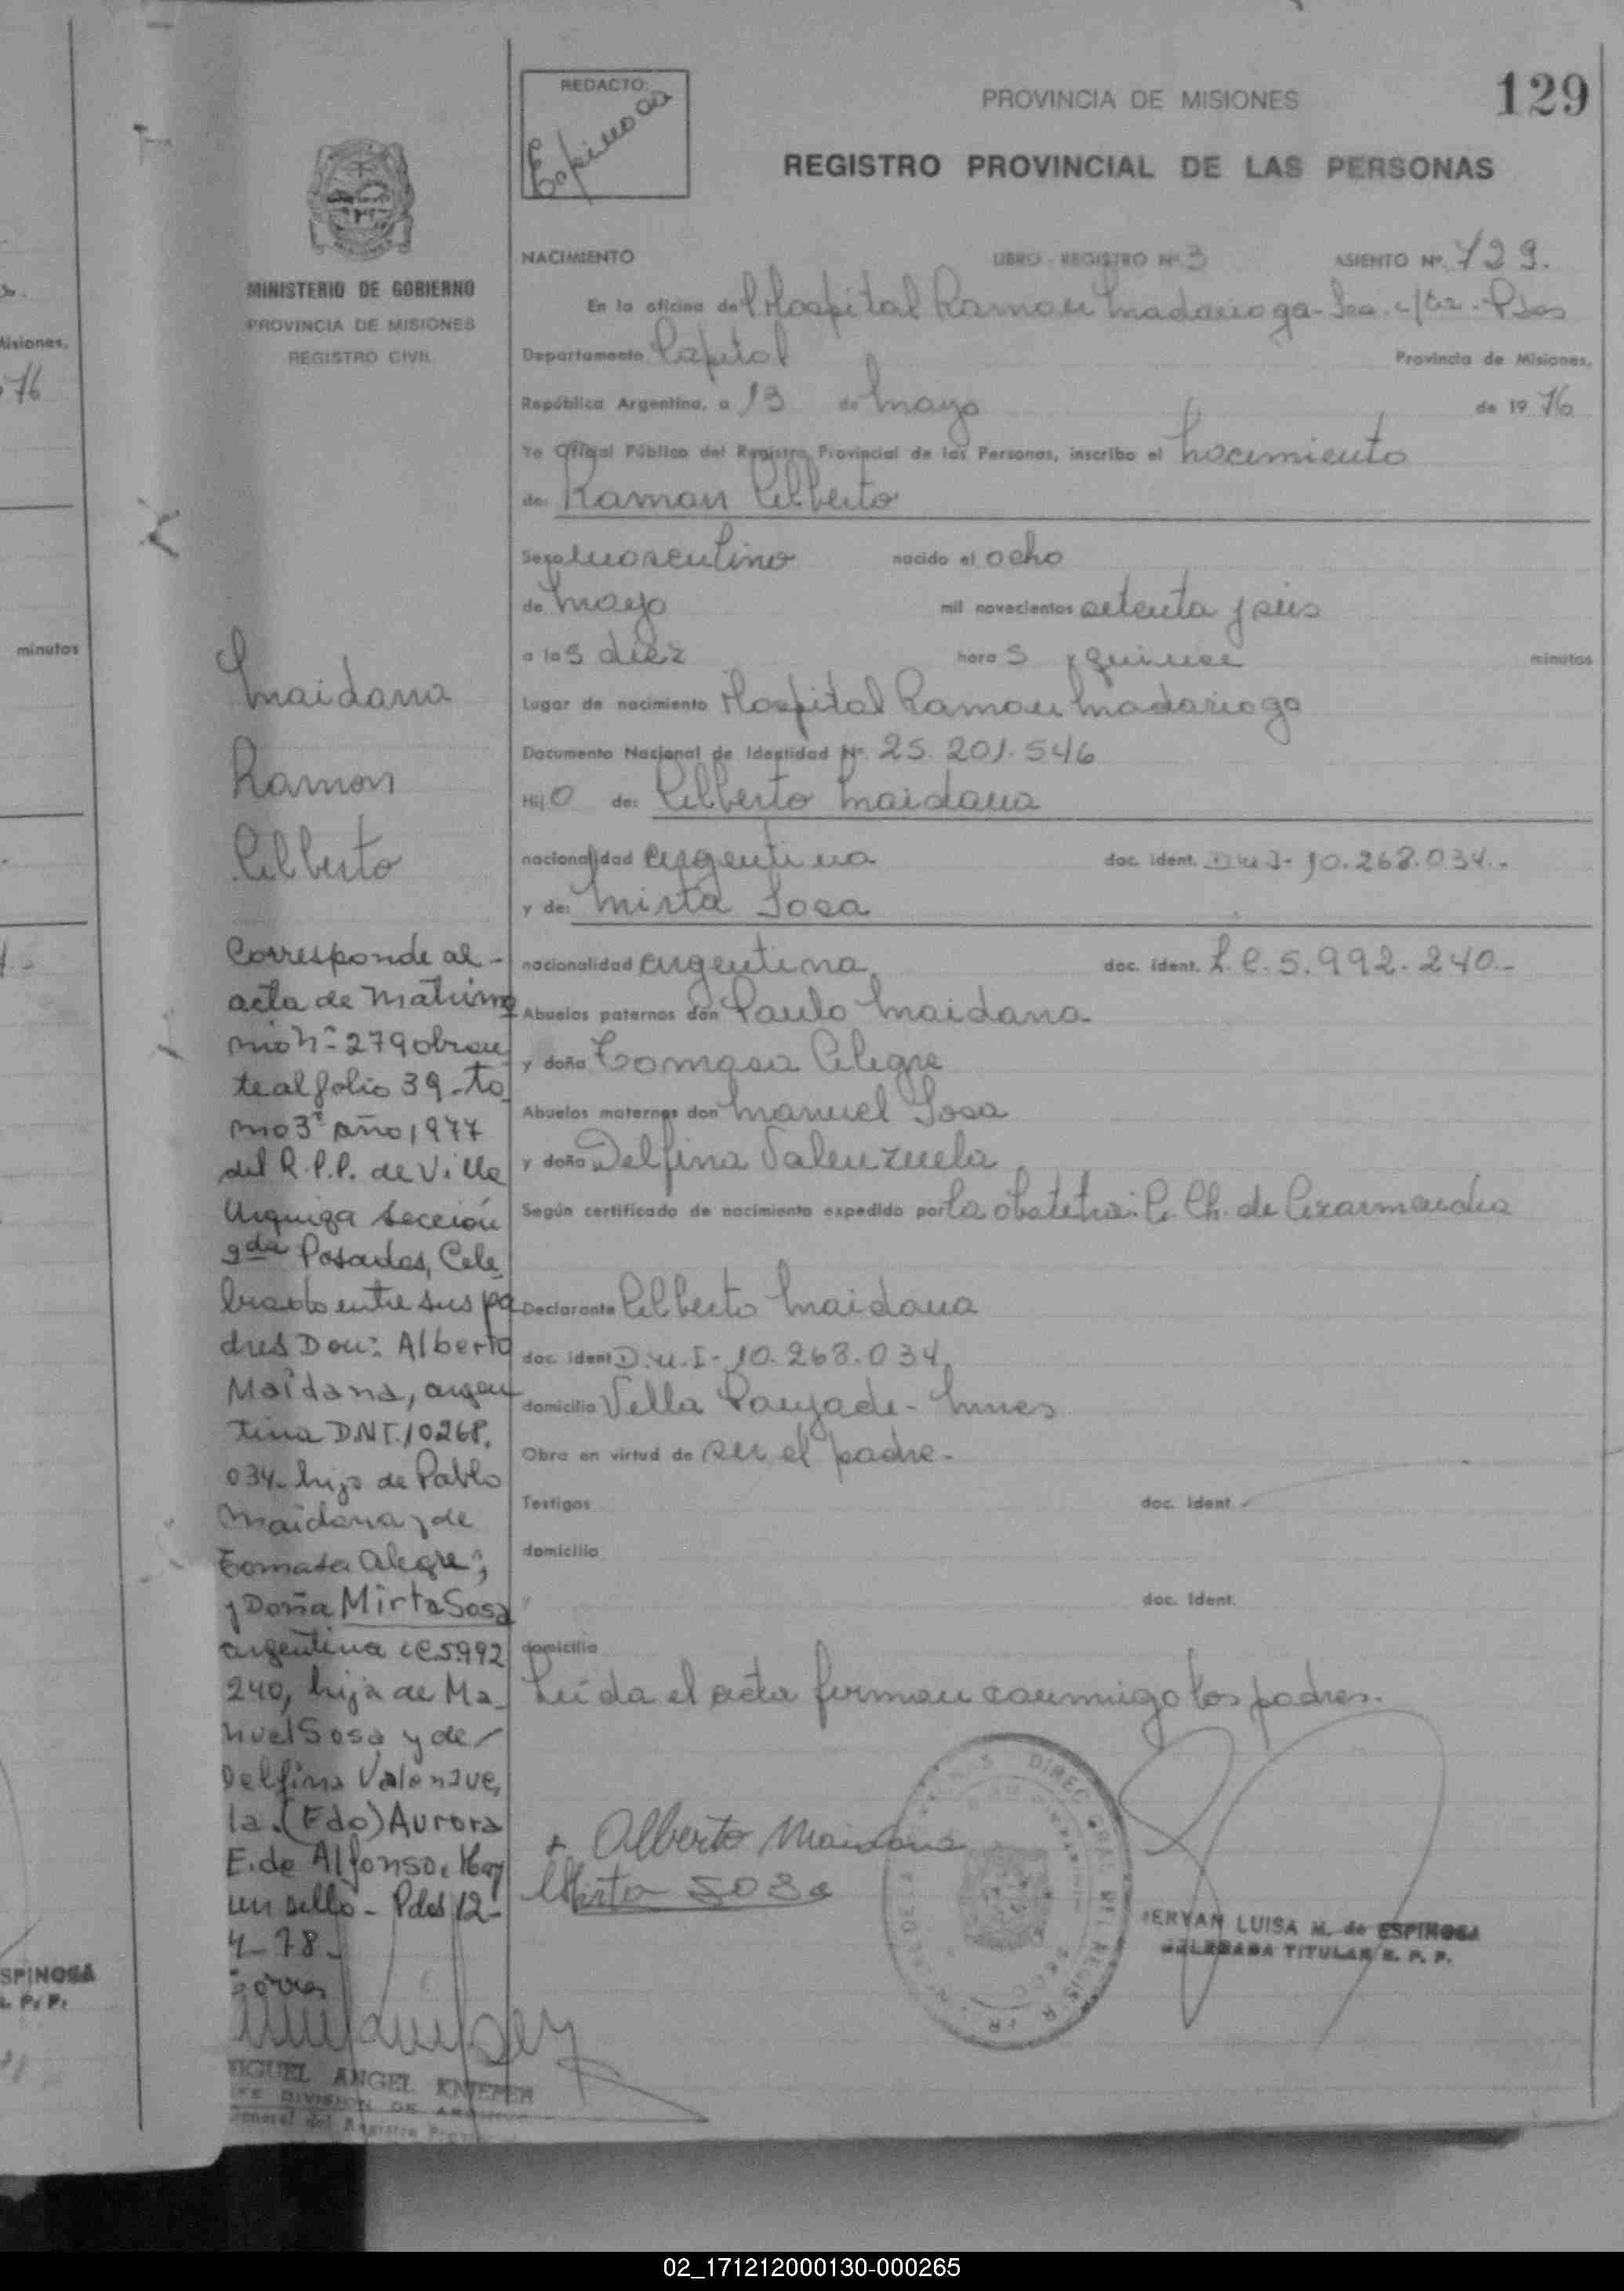 129
REDACTO:
Espinosa
PROVINCIA DE MISIONES
REGISTRO PROVINCIAL DE LAS PERSONAS
MINISTERIO DE GOBIERNO
PROVINCIA DE MISIONES
REGISTRO CIVIL
NACIMIENTO LIBRO - REGISTRO Nº 3 ASIENTO Nº 729.
En la oficina del Hospital Ramon Madariaga - Sec. - Pdas
Departamento Capital Provincia de Misiones,
República Argentina, a 13 de Mayo de 1976
Yo Oficial Público del Registro Provincial de las Personas, inscribo el Nacimiento
de: Ramon Alberto
Sexo masculino nacido el ocho
de Mayo mil novecientos setenta y seis
a las diez horas y quince minutos
Lugar de nacimiento Hospital Ramon Madariaga
Documento Nacional de Identidad Nº 25.201.546
Hijo de: Alberto Maidana
nacionalidad argentina doc. ident. D.N.I- 10.268.034.-
y de: Mirta Sosa
nacionalidad argentina doc. ident. L.C. 5.992.240.-
Abuelos paternos don Paulo Maidana
y doña Tomasa Alegre
Abuelos maternos don Manuel Sosa
y doña Delfina Valenzuela
Según certificado de nacimiento expedido por la obstetra: Ch. de
Declarante Alberto Maidana
doc. ident D.N.I- 10.268.034
domicilio Villa
Obra en virtud de ser el padre.
Testigos doc. ident.
domicilio
y doc. ident.
domicilio
Leída el acta firman conmigo los padres.
Alberto Maidana
Mirta Sosa
LUISA M. de ESPINOSA
DELEGADA TITULAR R. P. P.
Maidana
Ramon
Alberto
Corresponde al
acta de Matrimo
nio Nº 279 obran
te al folio 39 - to
mo 3º año 1977
del R.P.P. de Villa
Urquiza sección
2da Posadas, Cele
brado entre sus pa
dres Don: Alberto
Maidana, argen
tino D.N.I. 10268.
034. hijo de Pablo
Maidana y de
Tomasa Alegre;
y Doña Mirta Sosa
argentina LC.5.992
240, hija de Ma
nuel Sosa y de
Delfina Valenzue
la. (Fdo) Aurora
E. de Alfonso. Hay
un sello - Pdas 12-
4-78-
MIGUEL ANGEL KNIEPER
JEFE DIVISION DE ARCHIVO
General del Registro
Misiones,
76
minutos
ESPINOSA
R. P. P.
02_171212000130-000265